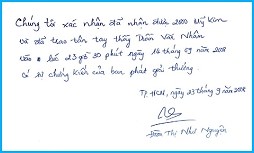 Chúng tôi xác nhận đã nhận đủ 200 Mỹ kim
và đã trao tận tay thầy Trần Việt Nhân
vào 23 giờ 30 phút ngày 16 tháng 09 năm
có sự chứng kiến của ban phát giải thưởng
Tp. HCM, ngày 23 tháng 9 năm
Thị Như Nguyện